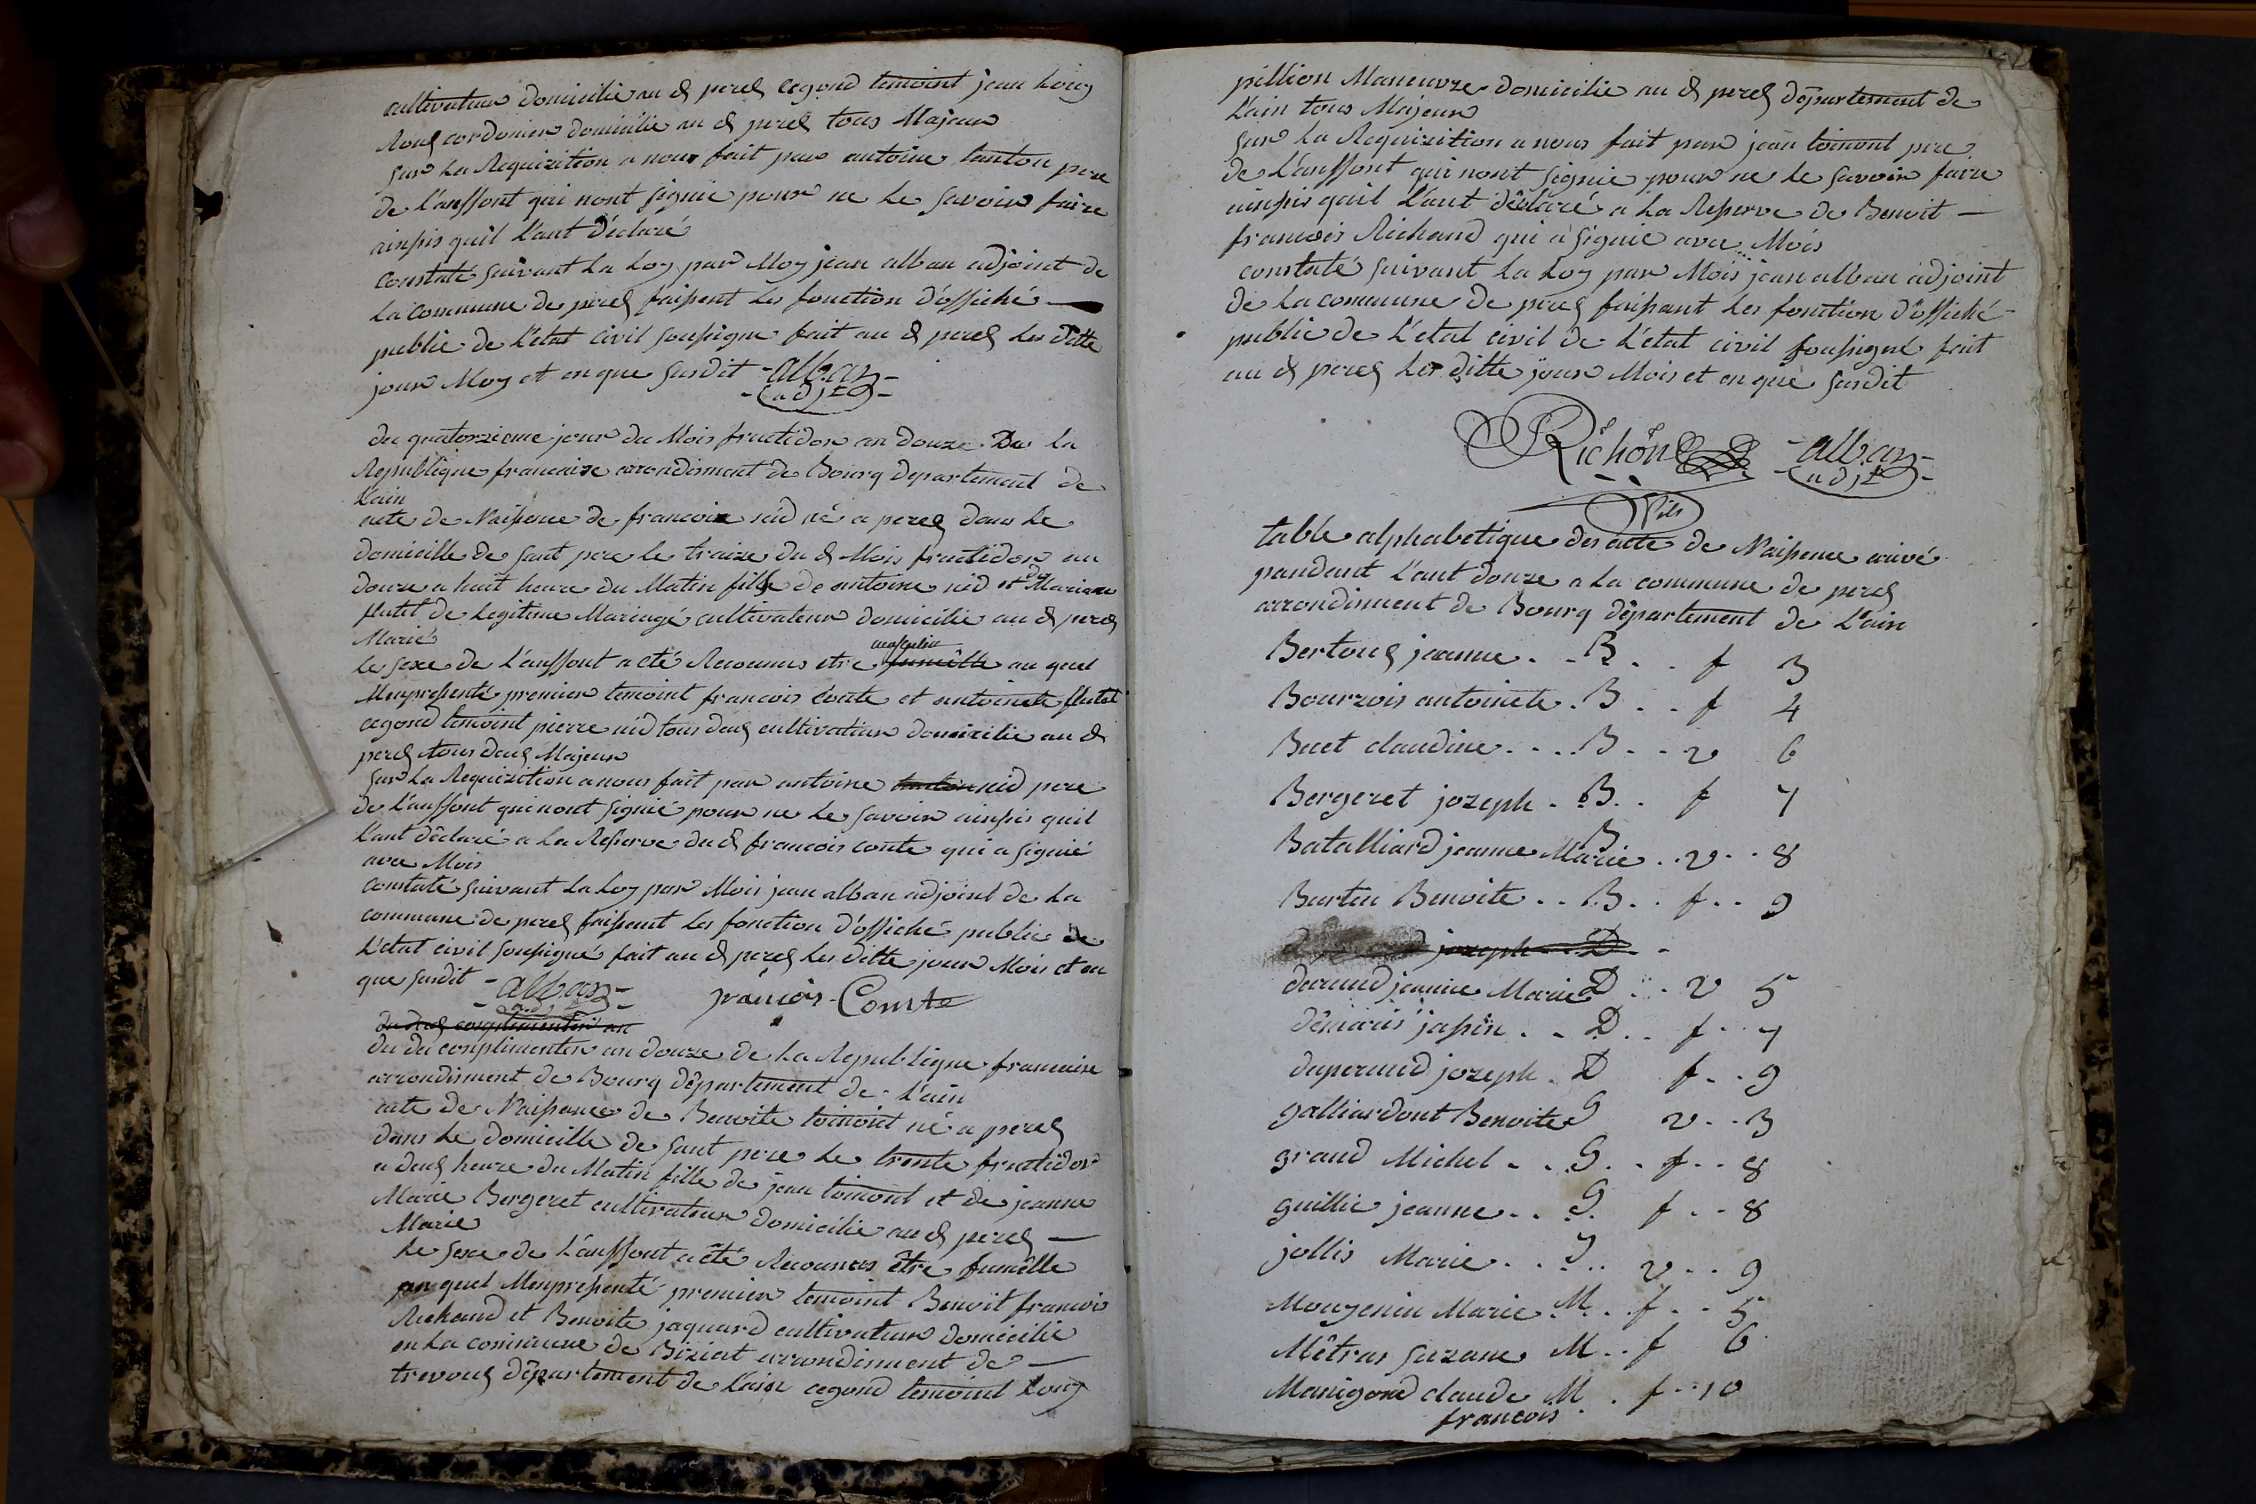 cultivateur domicilie au d perex cegond temoint jean Louy
Roux cordonier domicilie au d perex tous Majeur
sur La Requizition a nous fait par antoine tanton pere
de L'anffont qui nont signie pour ne Le savoir faire
ainssis quil L'ant déclaré
constaté suivant La Loy par Moy jean alban adjoint de
La commune de perex faissent Les fonction d'offiché
public de L'etat civil soussigne fait au d perex Les ditte
jour Moy et en que susdit alban
adjt
du quatorzieme jour du Mois fructidor an douze De La
Republique francaize arrondisment de Bourg departement de
L'ain
acte de Naissence de francoix nid né a perex dans Le
domicille de sant pere le traize du d Mois fructidor an
douze a huit heure du Matin fills de antoine nid et de Mariane
flutet de Legitime Mariage cultivateur domicilie au d perex
Mariés
Le sexe de L'anffont a cté Reconnus etre masculin fumêlle au quel
Menpressenté premier temoint francois conte et antoinete flutet
cegond temoint pierre nid tous deux cultivateur domicilie au d
perex tous deux Majeur
sur La Requizition a nous fait par antoine tanton nid pere
de L'anffont qui nont signié pour ne Le savoir ainssis quil
L'ant déclaré a La Resserve du d francois conte qui a signié
avec Mois
constaté suivant La Loy par Mois jean alban adjoint de La
commune de perex faissent Les fonction d'offiché public de
L'etat civil soussigné fait au d perex Les ditte jour Mois et en
que susdit alban francois Comte
adjt
du deux conplimenter an
du du conplimenter an douze de La Republique francaise
arrondisment de Bourg département de L'ain
acte de Naissence de Benoite toinont né a perex
dans Le domicille de sant pere Le trente fructidor
a deux heure du Matin fille de jean toinont et de jeanne
Marie Bergeret cultivateur domicilie au d perex
Marie
Le sexe de L'anffont a été Reconnus être fumêlle
au quel Menpressenté premier temoint Benoit francois
Richand et Benoite jaquard cultivateur domicilie
en La commune de Biziat arrondisment de
trevoux département de L'ain cegond temoint Louy
pillion Maneuvre domicilie au d perex département de
L'ain tous Majeur
sur La Requizition a nous fait par jean toinont pere
de L'anffont qui nont signie pour ne Le savoir faire
ainssis quil L'ant déclaré a La Resserve de Benoit
francois Richand qui à signie avec Mois
constaté suivant La Loy par Mois jean alban adjoint
de La commune de perex faissant Les fonction d'offiché
public de L'etat civil de L'état civil soussigné fait
au d perex Les ditte jour Mois et en que susdit
Richon alban
fils adjt
table alphabetique des acte de Naissence arivé
pandant L'ant douze a La commune de perex
arrondisment de Bourg département de L'ain
Bertoux jeanne B f 3
Bourzois antoinete B f 4
Buet claudine B v 6
Bergeret jozeph B f 7
Batalliard jeanne Marie B v 8
Burtin Benoite B f 9
jozeph D
durand jeanne Marie D v 5
démaris japsin D f 7
duperaud jozeph D f 9
galliardont Benoite G v 3
grand Michel G f 8
guillie jeanne G f 8
jollis Marie J v 9
Mougenin Marie M f 5
Mêtras suzane M f 6
Manigond claude M f 10
francois